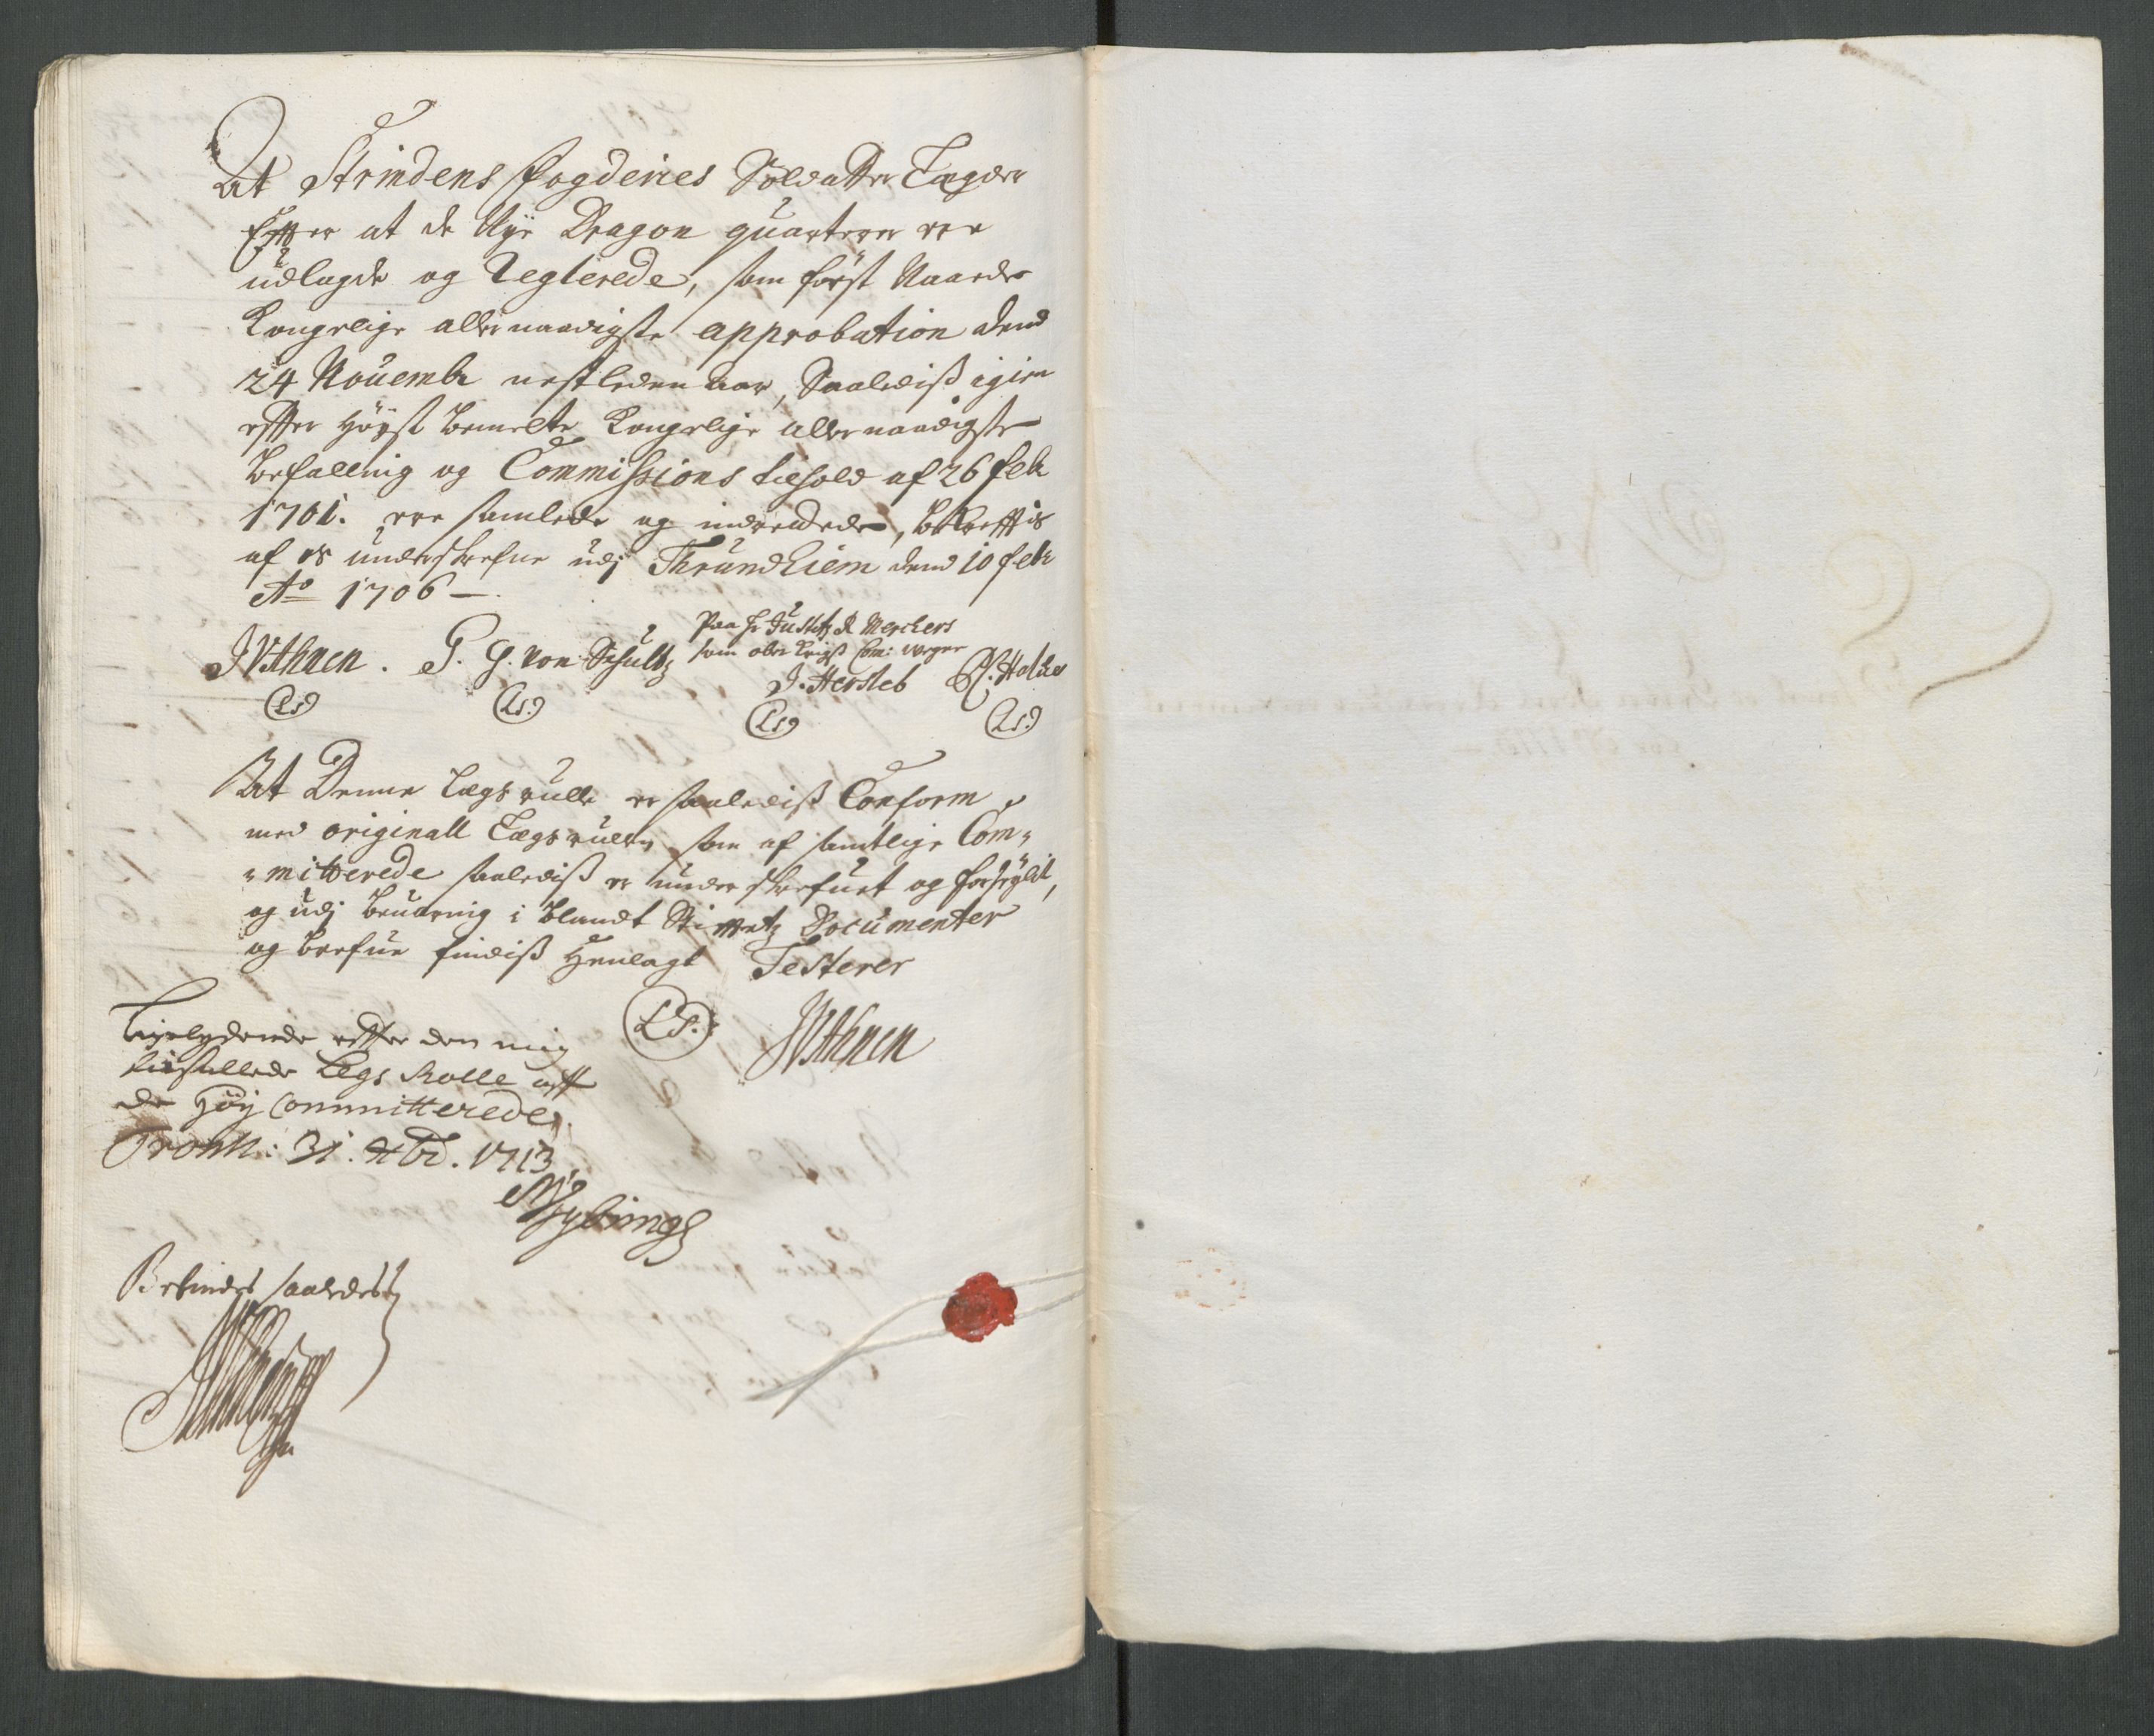 At Strindens fogderies Soldatter Lægder
Effter at de Nye Dragon quarterer ere
udlagde og Reglerede, som först Naaede
Kongelige allernaadigste approbation dend
24 Nouembr nestleden aar, Saaledis igien
effter Höyst bemelte Kongelige allernaadigste
befalling og Commissions tilhold af 26 febr
1701. ere samlede og inddeelede, bekrefftis
af os underskrefne udj Thrundhiem dend 10 febr
Ao 1706 -
JVithnen. P. G. von Schultz Paa Hr Justitz R Merckers
som ober Krigs Com: vegne
J. Hersleb H. Holck
(LS) (LS.) (LS) (LS.)
At Denne Lægs rulle er saaledis Conform
med originall Lægs rullen som af samtlige Com-
-mitterede saaledis er underskrefuet og forseglit,
og udj beuaring i blandt Stifftetz Documenter
og brefue findis Henlagt Testerer
(LS.) JVithnen
Ligelydende effter den mig
tilstillede Legs Rolle aff
de Höy Committerede.
Tronh: 31. xbr. 1713
Befindes saaledes